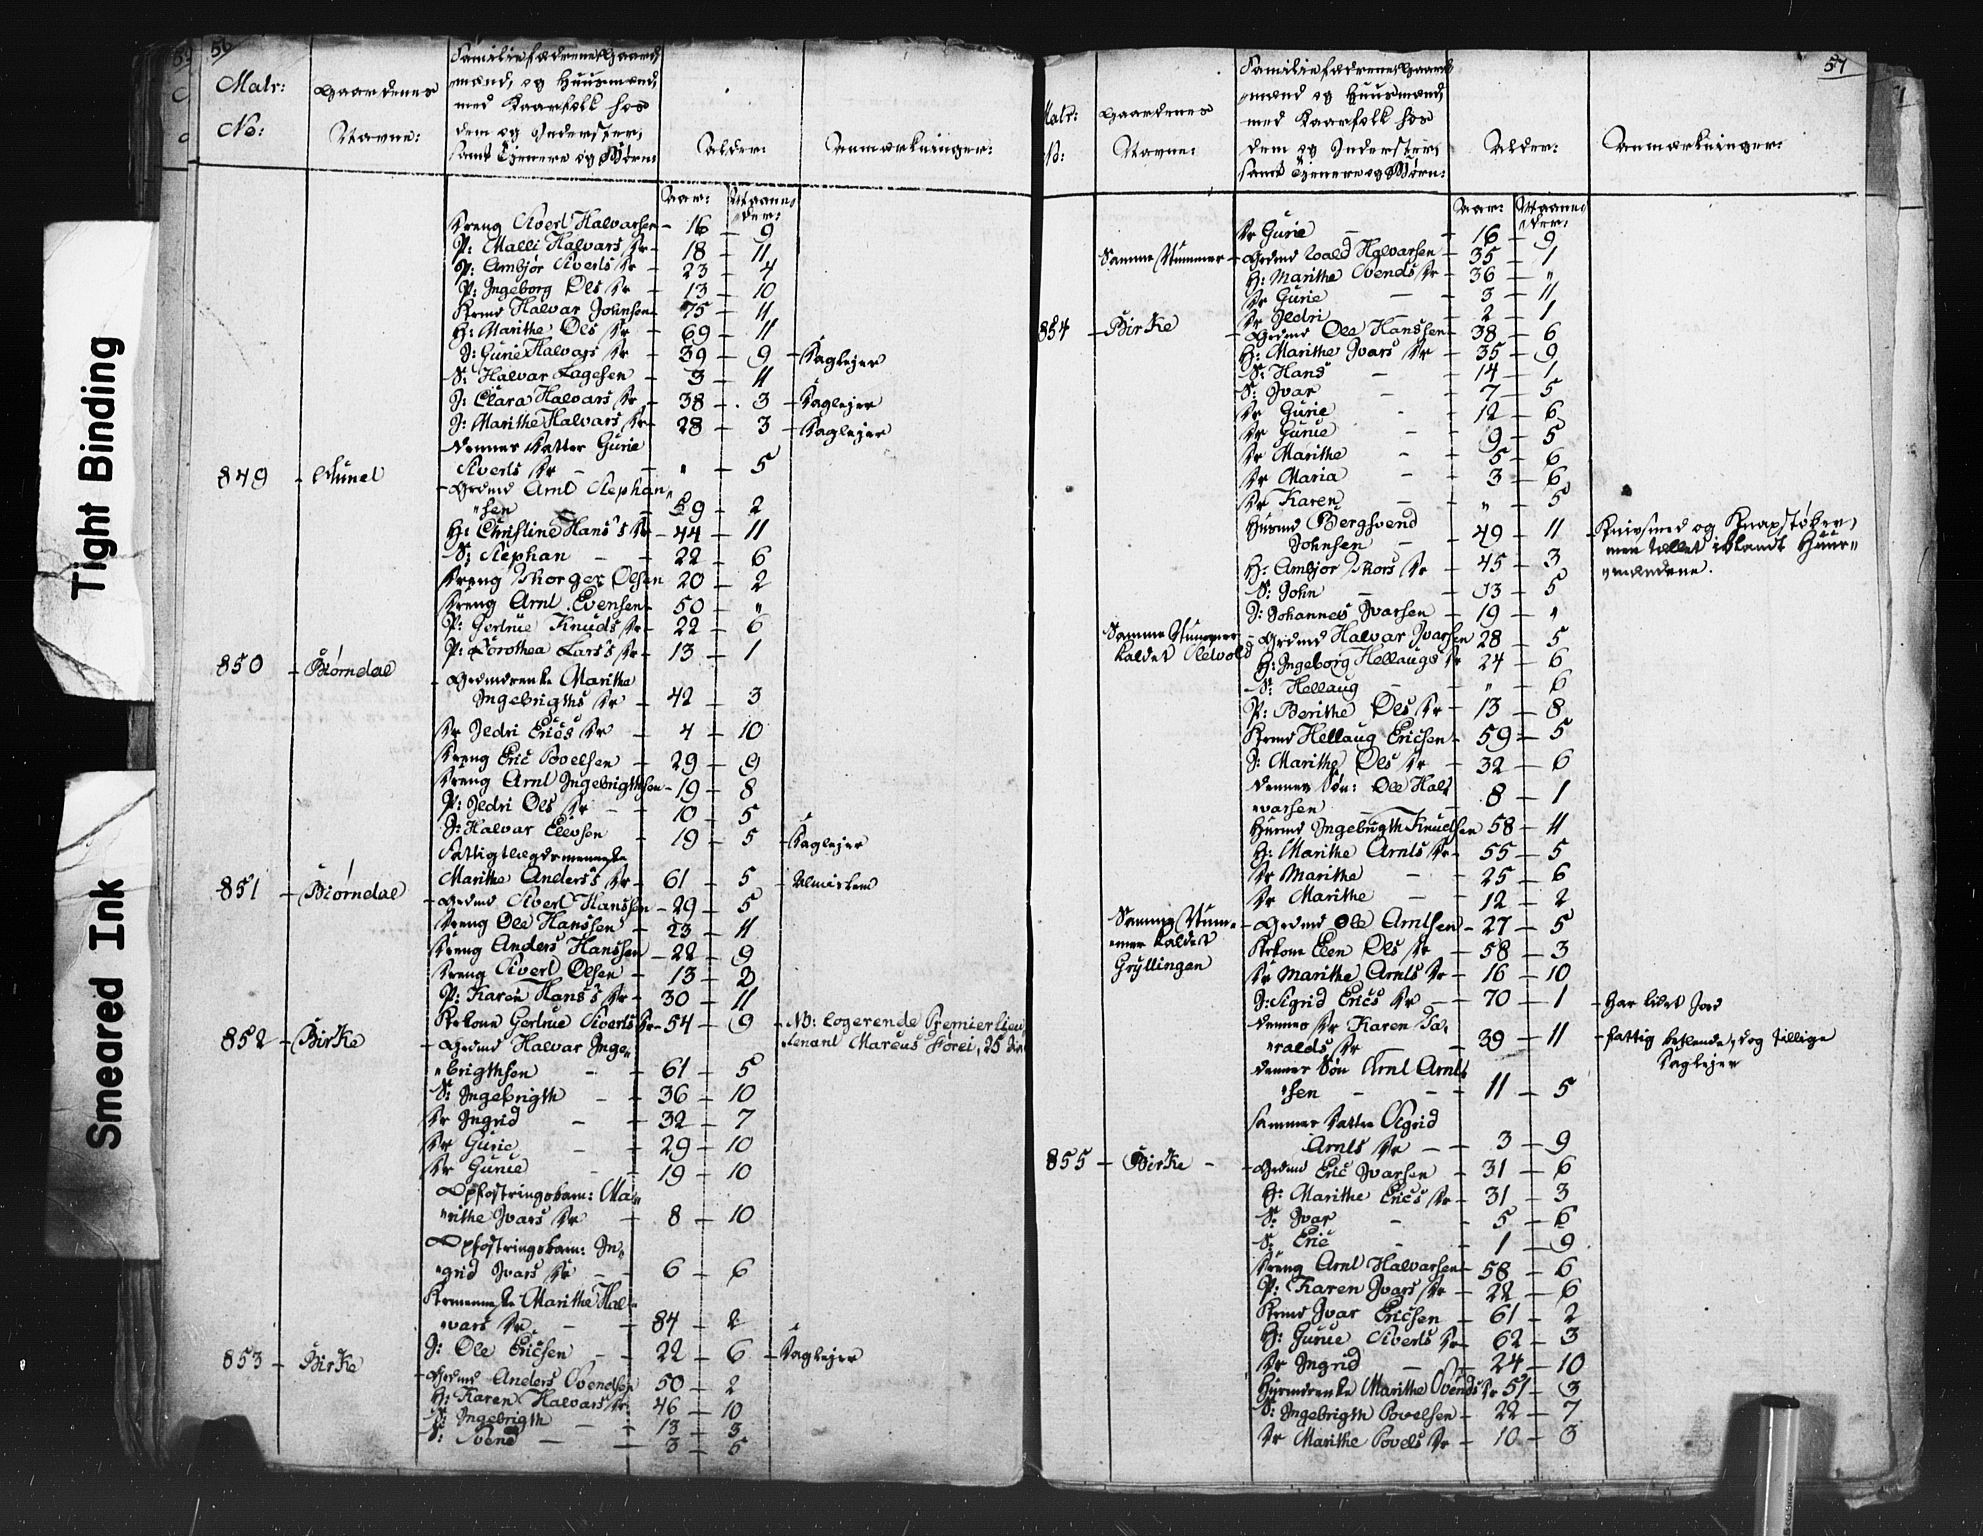 Tight Binding
Smeared Ink
56
Matr: No:
Gaardenes Navne:
Familiefædrene Gaard
mænd, og Huusmænd,
med Kaarfolk hos
dem og Inderster,
samt Tjenere og Børn:
Alder:
Anmærkninger:
Aar: Maane
der:
Dreng Sivert Halvarsen 16 9
P: Malli Halvars Dr 18 11
P: Ambjør Siverts Dr 23 4
P: Ingeborg Ols Dr 13 10
Krmd Halvar Johnsen 75 11
H: Marithe Ols Dr 69 11
I: Gurie Halvars Dr 39 9 Daglejer
S: Halvar Lagesen 3 11
I: Clara Halvars Dr 38 3 Daglejer
I: Marithe Halvars Dr 28 3 Daglejer
dennes Datter Gurie
Siverts Dr " 5
849
Grdmd Arnt Stephan
"sen 59 2
H: Christine Hans's Dr 44 11
S: Stephan 22 6
Dreng Thorger Olsen 20 2
Dreng Arnt Evensen 50 "
P: Gertrue Knuds Dr 22 6
P: Dorothea Lars's Dr 13 1
850 Biørndal
Grdmdenke Marithe
Ingebrigths Dr 42 3
Dr Jedri Erics Dr 4 10
Dreng Eric Povelsen 29 9
Dreng Arnt Ingebrigthsen 19 8
P: Jedri Ols Dr 10 5
I: Halvar Ellevsen 19 5 Daglejer
Fattiglægdsmenneske
Marithe Anders's Dr 61 5 Almissem
851 Biørndal Grdmd Sivert Hanssen 29 5
Dreng Ole Hanssen 23 11
Dreng Anders Hanssen 22 9
Dreng Sivert Olsen 13 2
P: Karen Hans's Dr 30 11
Krkone Gertrue Siverts Dr 54 9 NB: logerende Premierlieu
tenant Marcus Forei, 25
852 Birke Grdmd Halvar Inge
"brigthsen 61 5
S: Ingebrigth 36 10
Dr Ingrid 32 7
Dr Gurie 29 10
Dr Gurue 19 10
Opfostringsbarn: Ma
"rithe Ivars Dr 8 10
Opfostringsbarn: In
"grid Ivars Dr 6 6
Krmenneske Marithe Hal
"vars Dr 84 2
I: Ole Ericsen 22 6 Daglejer
853 Birke
Grdmd Anders Svendsen 50 2
H: Karen Halvars Dr 46 10
S: Ingebrigth 13 3
S: Svend 3 5
57
Matr: No:
Gaardenes Navne:
Familiefædrene Gaard
mænd og Huusmænd,
med Kaarfolk hos
dem og Inderster,
samt Tjenere og Børn:
Alder:
Anmærkninger:
Aar: Maane
der:
Dr Gurie 16 9
Samme Nummer Grdmd Halvarsen 35 1
H: Marithe Svends Dr 36 "
Dr Gurie 3 11
Dr Jedri 2 1
854 Birke Grdmd Ole Hanssen 38 6
H: Marithe Ivars Dr 35 9
S: Hans 14 1
S: Ivar 7 5
Dr Gurie 12 6
Dr Gurue 9 5
Dr Marithe 5 6
Dr Maria 3 6
Dr Karen " 5
Husmd Bergsvend
Johnsen 49 11 Knivsmed og Knapstøber,
men tællet iblandt Huus
mændene.
H: Ambjør Thors Dr 45 3
S: John 13 5
I: Johannes Ivarsen 19 "
Samme Nummer
kaldet Slevold
Grdmd Halvar Ivarsen 28 5
H: Ingeborg Hellaugs Dr 24 6
S: Hellaug " 6
P: Berithe Ols Dr 13 8
Krmd Hellaug Ericsen 59 5
I: Marithe Ols Dr 32 6
dennes Søn: Ole Hal
"varsen 8 1
Husmd Ingebrigth Knudsen 58 11
H: Marithe Arnts Dr 55 5
Dr Marithe 25 6
Dr Marithe 12 2
Samme Num
mer kaldet
Gryllingen
Grdmd Ole Arntsen 27 5
Krkone Elen Ols Dr 58 3
Dr Marithe Arnts Dr 16 10
I: Sigrid Erics Dr 70 1 Har lidet Jord
dennes Dr Karen Ta
"ralds Dr 39 11 fattig betlende, dog tillige
Daglejer
dennes Søn Arnt Arnt
"sen 11 5
sammes Datter Sigrid
Arnts Dr 3 9
855 Birke Grdmd Eric Ivarsen 31 6
H: Marithe Erics Dr 31 3
S: Ivar 5 6
S: Eric 1 9
Dreng Arnt Halvarsen 58 6
P: Karen Ivars Dr 22 6
Krmd Ivar Ericsen 61 2
H: Gurue Siverts Dr 62 3
Dr Ingrid 24 10
Husmdenke Marithe Svends Dr 51 3
S: Ingebrigth Povelsen 22 7
Dr Marithe Povels Dr 10 3